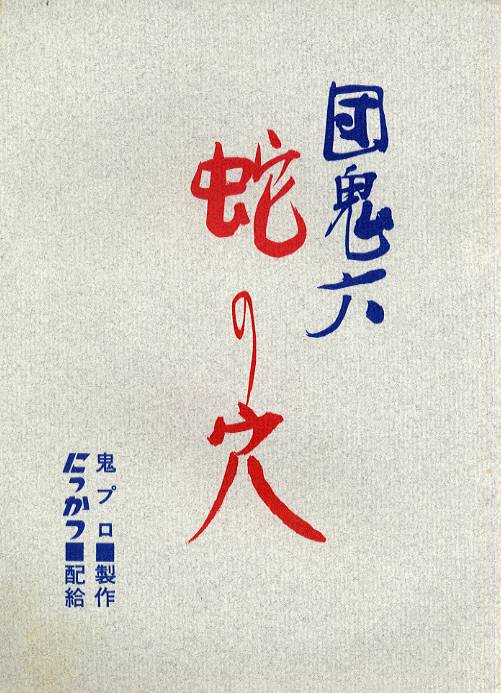 団鬼六
蛇の穴
鬼プロ■製作
にっかつ■配給